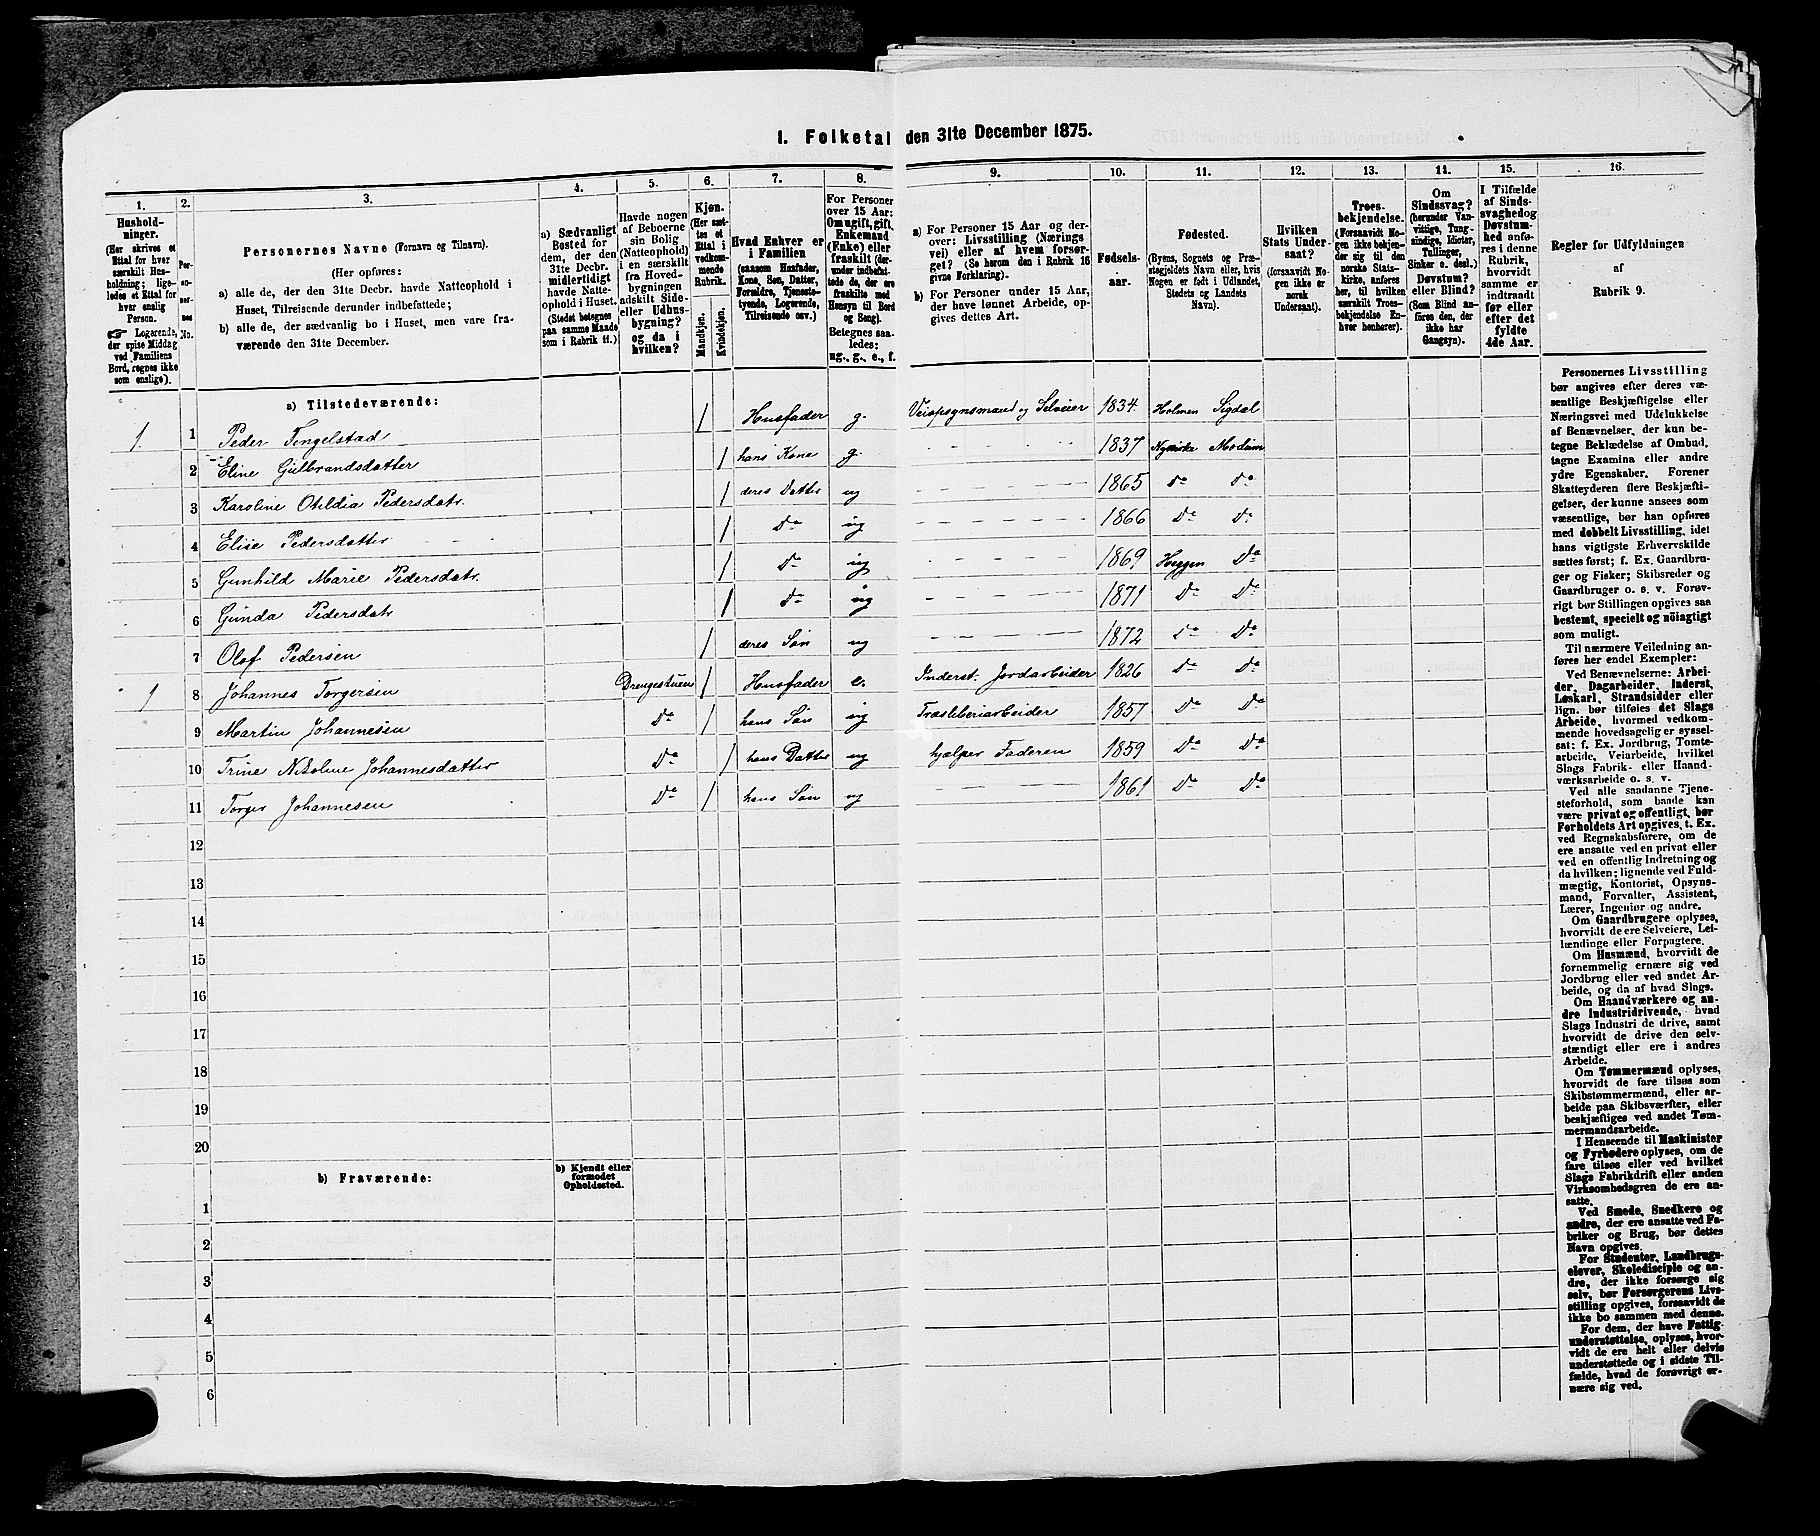 1. Folketal den 31te December 1875.
1.
Hushold-
ninger.
(Her skrives et
Ettal for hver
særskilt Hus-
holdning; lige-
ledes et Ettal for
hver enslig
Person.
☞ Logerende,
der spise Middag
ved Familiens
Bord, regnes ikke
som enslige).
2.
Per-
so-
ner-
nes
No.
3.
Personernes Navne (Fornavn og Tilnavn).
(Her opføres:
a) alle de, der den 31te Decbr. havde Natteophold i
Huset, Tilreisende derunder indbefattede;
b) alle de, der sædvanlig bo i Huset, men vare fra-
værende den 31te December.
4.
a) Sædvanligt
Bosted for
dem, der den
31te Decbr.
midlertidigt
havde Natte-
ophold i Huset.
(Stedet betegnes
paa samme Maade
som i Rubrik 11.)
5.
Havde nogen
af Beboerne
sin Bolig
(Natteophold)
i en særskilt
fra Hoved-
bygningen
adskilt Side-
eller Udhus-
bygning?
og da i
hvilken?
6.
Kjøn.
(Her sæt-
tes et
Ettal i
vedkom-
mende
Rubrik.
Mandkjøn.
Kvindekjøn.
7.
Hvad Enhver er
i Familien
(saasom Husfader,
Kone, Søn, Datter,
Forældre, Tjeneste-
tyende, Logerende,
Tilreisende osv.)
8.
For Personer
over 15 Aar:
Om ugift, gift,
Enkemand
(Enke) eller
fraskilt (der-
under indbefat-
tede de, der ere
fraskilte med
Hensyn til Bord
og Seng).
Betegnes saa-
ledes:
ug., g., e., f.
9.
a) For Personer 15 Aar og der-
over: Livsstilling (Nærings
vei) eller af hvem forsør-
get? (Se herom den i Rubrik 16
givne Forklaring).
b) For Personer under 15 Aar,
der have lønnet Arbeide, op-
gives dettes Art.
10.
Fødsels-
aar.
11.
Fødested.
(Byens, Sognets og Præ-
stegjeldets Navn eller, hvis
Nogen er født i Udlandet,
Stedets og Landets
Navn).
12.
Hvilken
Stats Under-
saat?
(forsaavidt No-
gen ikke er
norsk
Undersaat).
13.
Troes-
bekjendelse.
(Forsaavidt No-
gen ikke bekjen-
der sig til den
norske Stats-
kirke, anføres
her, til hvilken
særskilt Troes-
bekjendelse En-
hver henhører).
14.
Om
Sindssvag?
(herunder Van-
vittige, Tung-
sindige, Idioter,
Tullinger,
Sinker o. desl.)
Døvstum?
eller Blind?
(Som Blind an-
føres den, der
ikke har
Gangsyn).
15.
I Tilfælde
af Sinds-
svaghed og
Døvstum-
hed anfø-
res i denne
Rubrik,
hvorvidt
samme er
indtraadt
før eller
efter det
fyldte
4de Aar.
16.
Regler for Udfyldningen
af
Rubrik 9.
a) Tilstedeværende:
1 1 Peder Tingelstad / Husfader g. Veiopsynsmand og Selveier 1834. Holmen Sigdal
2 Eline Gulbrandsdatter / hans Kone g. - - - 1837 Modum
3 Karoline Otildia Pedersdatr. / deres Datter ug - - - 1865 do do
4 Elise Pedersdatter / Do ug - - - 1866 Do Do
5 Gunhild Marie Pedersdatr. / Do ug - - - 1869 Heggen Do
6 Gunda Pedersdatr / do ug - - - 1871 Do Do
7 Olaf Pedersen / deres Søn ug - - - 1872 Do Do
1 8 Johannes Torgersen Drengestuen / Husfader e. Inderst. Jordarbeider 1826 Do Do
9 Martin Johannesen Do / hans Søn ug Træsliberiarbeider 1857 Do Do
10 Trine Nikoline Johannesdatter Do / hans Datter ug hjælper Faderen 1859 Do Do
11 Torger Johannesen Do / hans Søn ug - - - 1861 Do Do
12
13
14
15
16
17
18
19
20
b) Fraværende:
b) Kjendt eller
formodet
Opholdssted.
1
2
3
4
5
6
Personernes Livsstilling
bør angives efter deres væ-
sentlige Beskjæftigelse eller
Næringsvei med Udelukkelse
af Benævnelser, der kun be-
tegne Beklædelse af Ombud,
tagne Examina eller andre
ydre Egenskaber. Forener
Skatteyderen flere Beskjæfti-
gelser, der kunne ansees som
væsentlige, bør han opføres
med dobbelt Livsstilling, idet
hans vigtigste Erhvervskilde
sættes først; f. Ex. Gaardbru-
ger og Fisker; Skibsreder og
Gaardbruger o. s. v. Forøv-
rigt bør Stillingen opgives saa
bestemt, specielt og nöiagtigt
som muligt.
Til nærmere Veiledning an-
føres her endel Exempler:
Ved Benævnelserne: Arbei-
der, Dagarbeider, Inderst,
Løskarl, Strandsidder eller
lign. bør tilføies det Slags
Arbeide, hvormed vedkom-
mende hovedsagelig er syssel-
sat: f. Ex. Jordbrug, Tomte-
arbeide, Veiarbeide, hvilket
Slags Fabrik- eller Haand-
værksarbeide o. s. v.
Ved alle saadanne Tjene-
steforhold, som baade kan
være privat og offentligt, bør
Forholdets Art opgives, t. Ex.
ved Regnskabsførere, om de
ere ansatte ved en privat eller
ved en offentlig Indretning og
da hvilken; lignende ved Fuld-
mægtig, Kontorist, Opsyns-
mand, Forvalter, Assistent,
Lærer, Ingeniør og andre.
Om Gaardbrugere oplyses,
hvorvidt de ere Selveiere, Lei-
lændinge eller Forpagtere.
Om Husmænd, hvorvidt de
fornemmelig ernære sig ved
Jordbrug eller ved andet Ar-
beide, og da af hvad Slags.
Om Haandværkere og an-
dre Industridrivende, hvad
Slags Industri de drive, samt
hvorvidt de drive den selv-
stændigt eller ere i andres
Arbeide.
Om Tømmermænd oplyses,
hvorvidt de fare tilsøs som
Skibstømmermænd, eller ar-
beide paa Skibsværfter, eller
beskjæftiges ved andet Tøm-
mermandsarbeide.
I Henseende til Maskinister
og Fyrbødere oplyses, om de
fare tilsøs eller ved hvilket
Slags Fabrikdrift eller anden
Virksomhedsgren de ere an-
satte.
Ved Smede, Snedkere og
andre, der ere ansatte ved Fa-
briker og Brug, bør dettes
Navn opgives.
For Studenter, Landbrugs-
elever, Skoledisciple og an-
dre, der ikke forsørge sig
selv, bør Forsørgerens Livs-
stilling opgives, forsaavidt de
ikke bo sammen med denne.
For dem, der have Fattig-
understøttelse, oplyses, hvor-
vidt de ere helt eller delvis
understøttede og i sidste Til-
fælde, hvad de forøvrigt er-
nære sig ved.